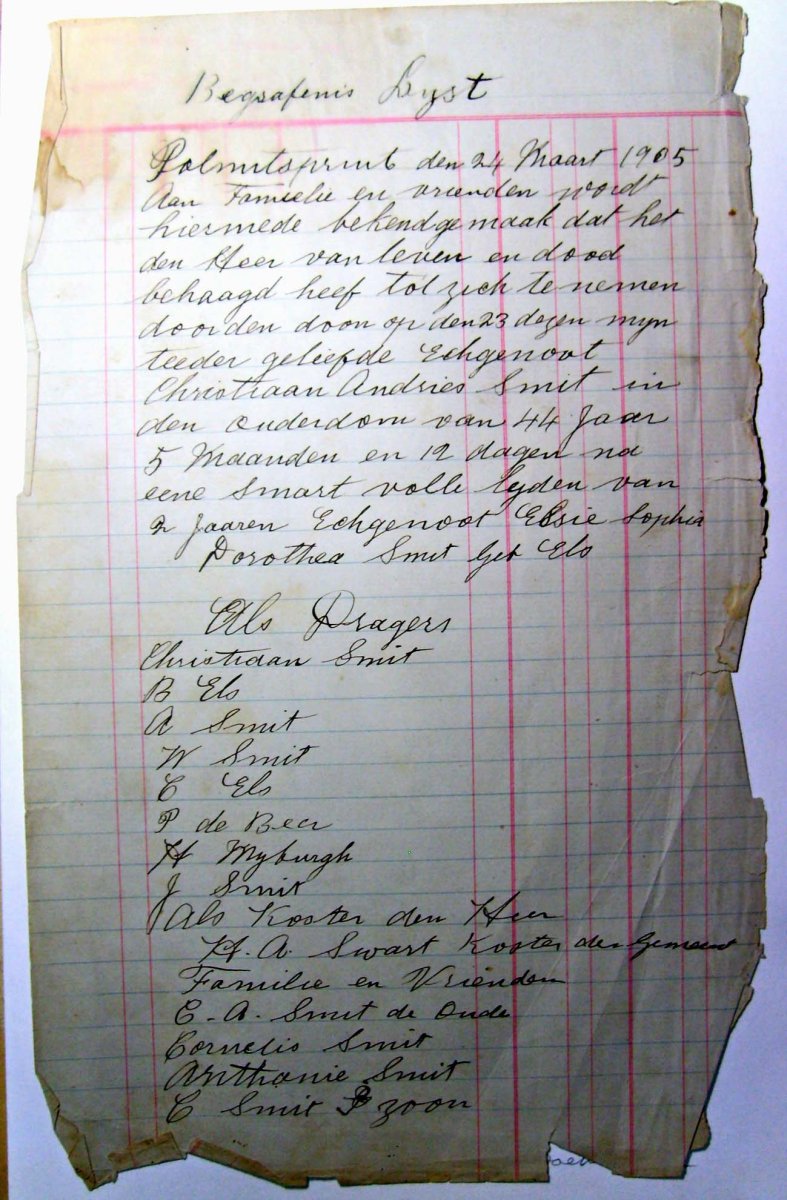 Begrafenis Lyst
den 24 Maart 1905
Aan Familie en vrienden wordt
hiermede bekendgemaak dat het
den Heer van leven en dood
behaagd heef tot zich te nemen
doorden doon op den 23 dezen myn
teeder geliefde Echgenoot
Christiaan Andries Smit in
den ouderdom van 44 Jaar
5 Maanden en 12 dagen na
eene Smart volle lyden van
2 Jaaren Echgenoot Elsie Sophia
Dorothea Smit Geb Els
Als Dragers
Christiaan Smit
B Els
A Smit
W Smit
C Els
P de Beer
H Myburgh
J Smit
Als Koster den Heer
H. A. Swart Koster der Gemeent
Familie en Vrienden
C. A. Smit de Oude
Cornelis Smit
Anthonie Smit
C Smit P zoon